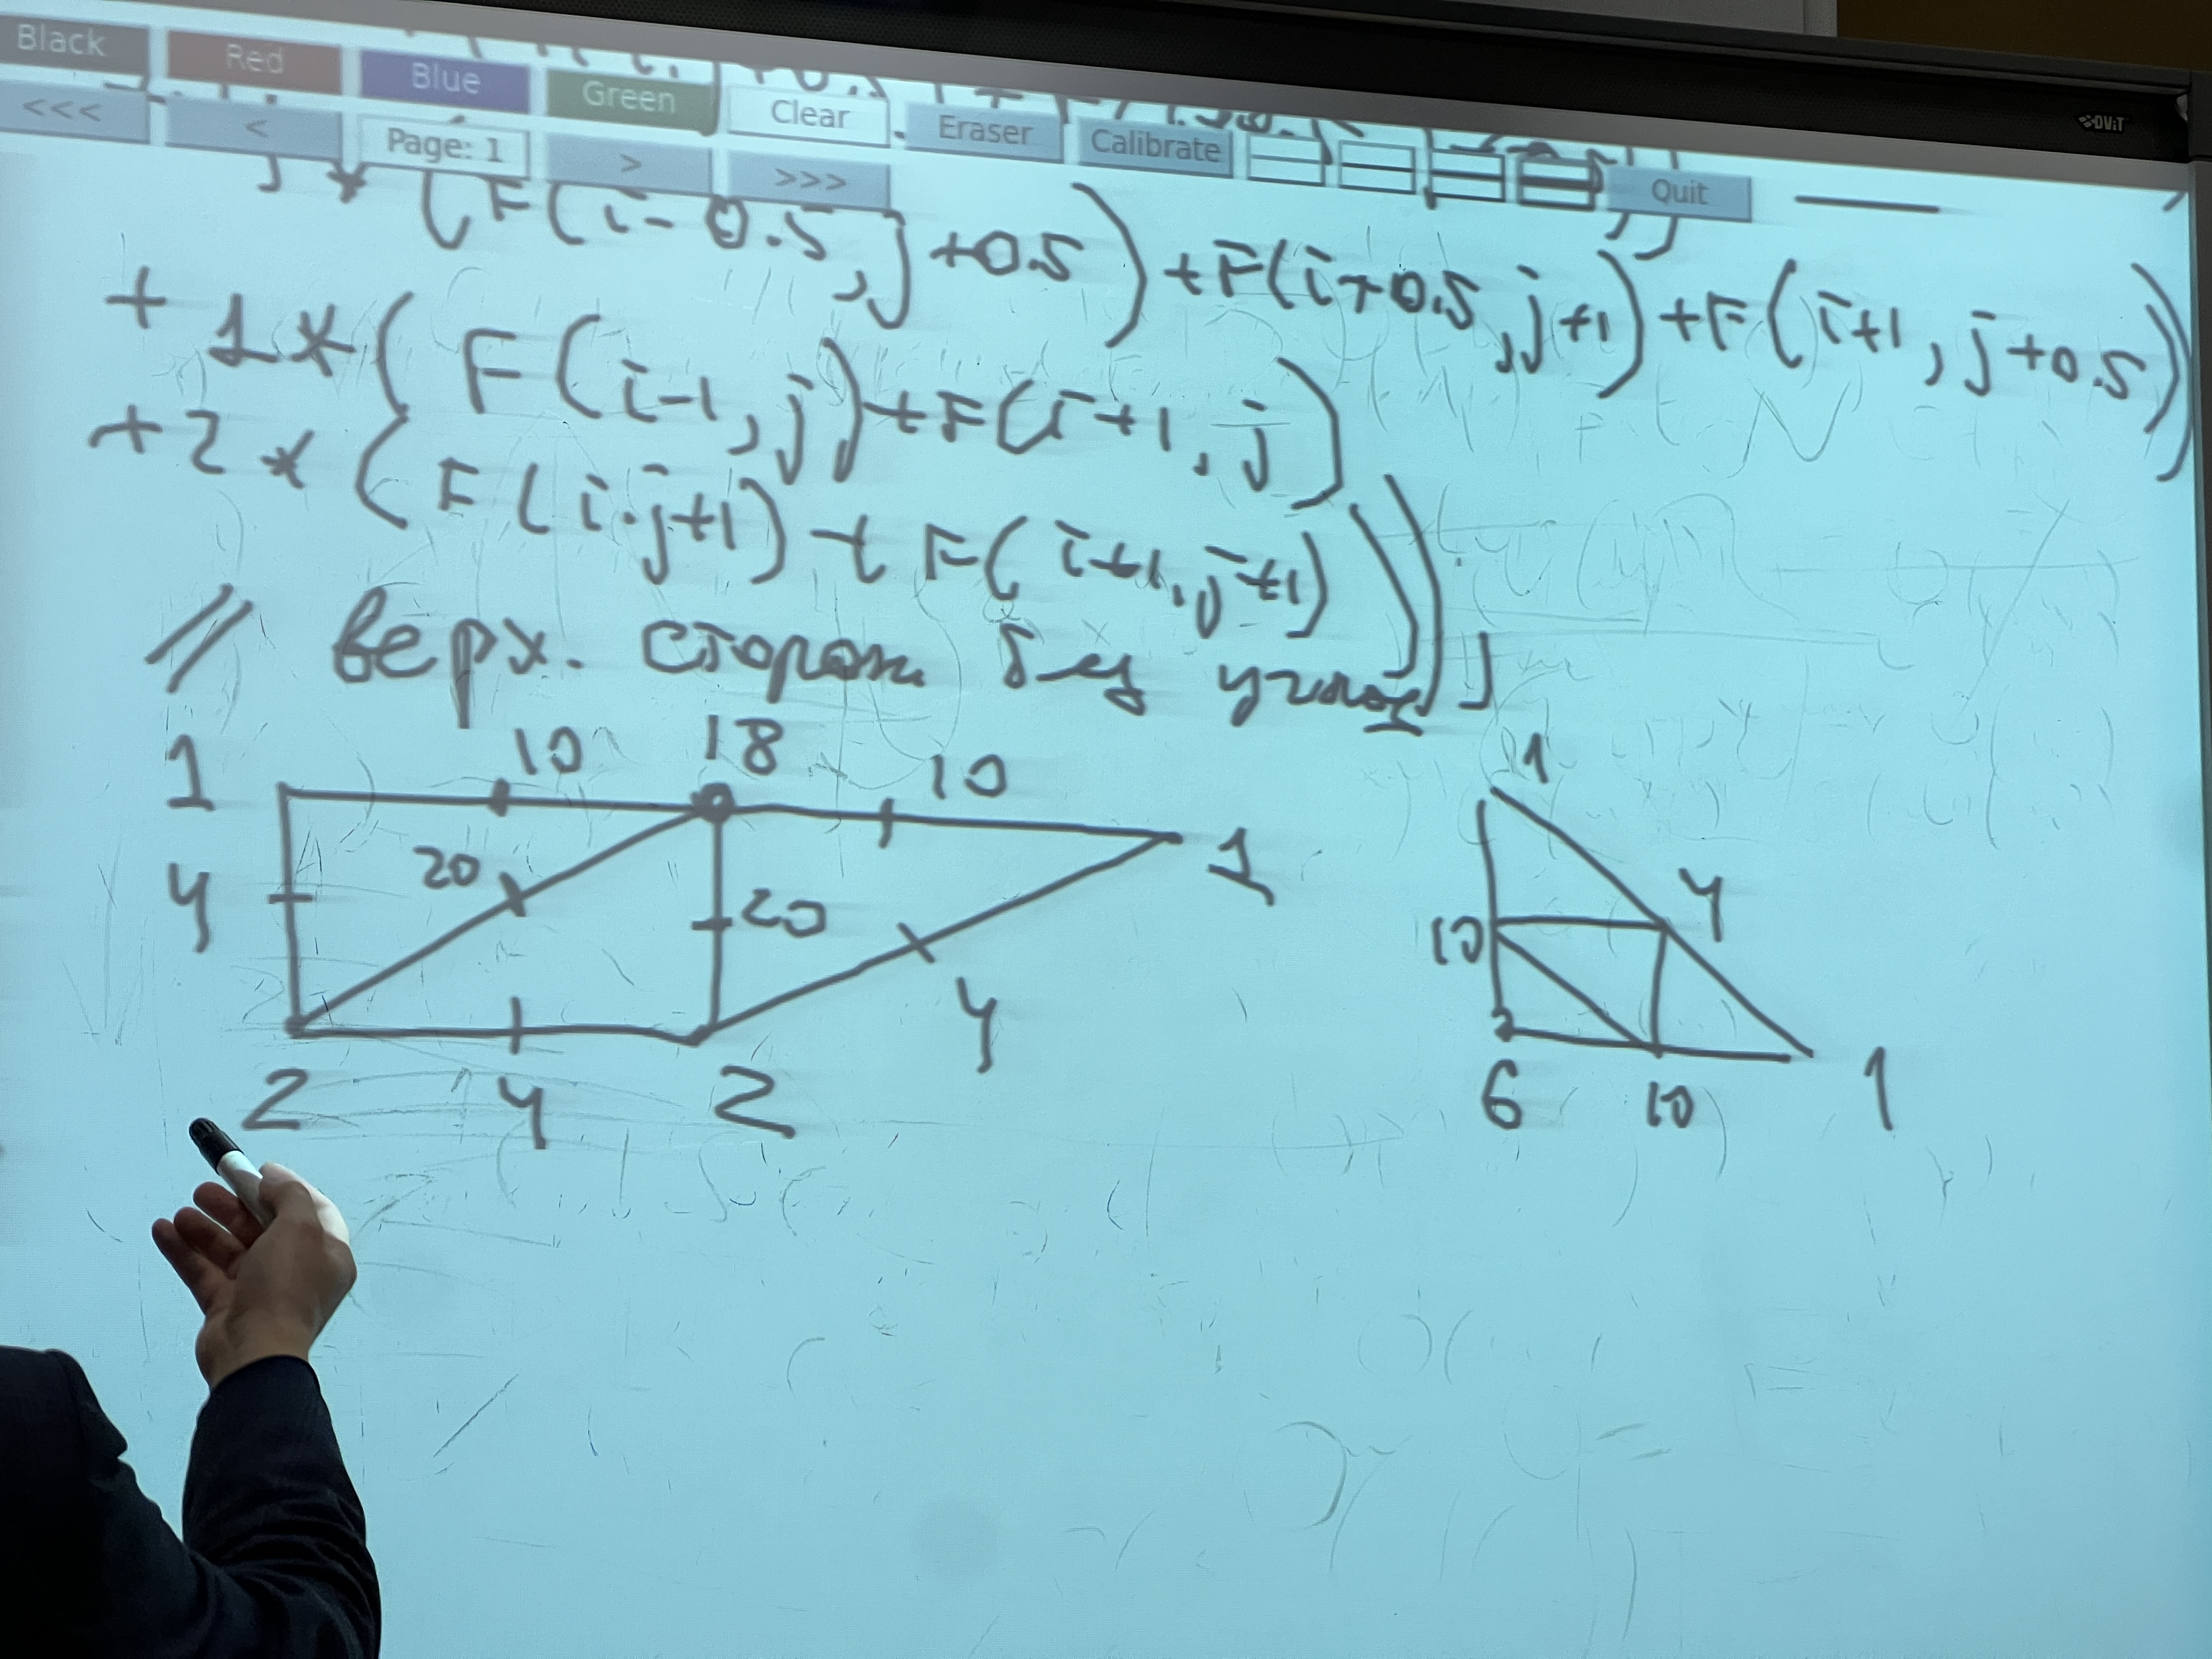 Black Red Blue Green Clear Eraser Calibrate Quit
<<< < Page: 1 > >>>
DViT
* (F(i-0.5, j+0.5) + F(i+0.5, j+1) + F(i+1, j+0.5))
+ 1*(F(i-1, j) + F(i+1, j)
+2*(F(i, j+1) + F(i+1, j+1))));
// верх. сторона без углов
1 10 18 10 1
4 20 20 4
2 4 2
1
10 4
6 10 1